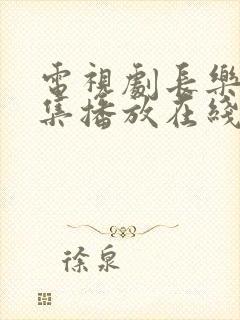 電視劇長樂
集播放在綫
徐泉